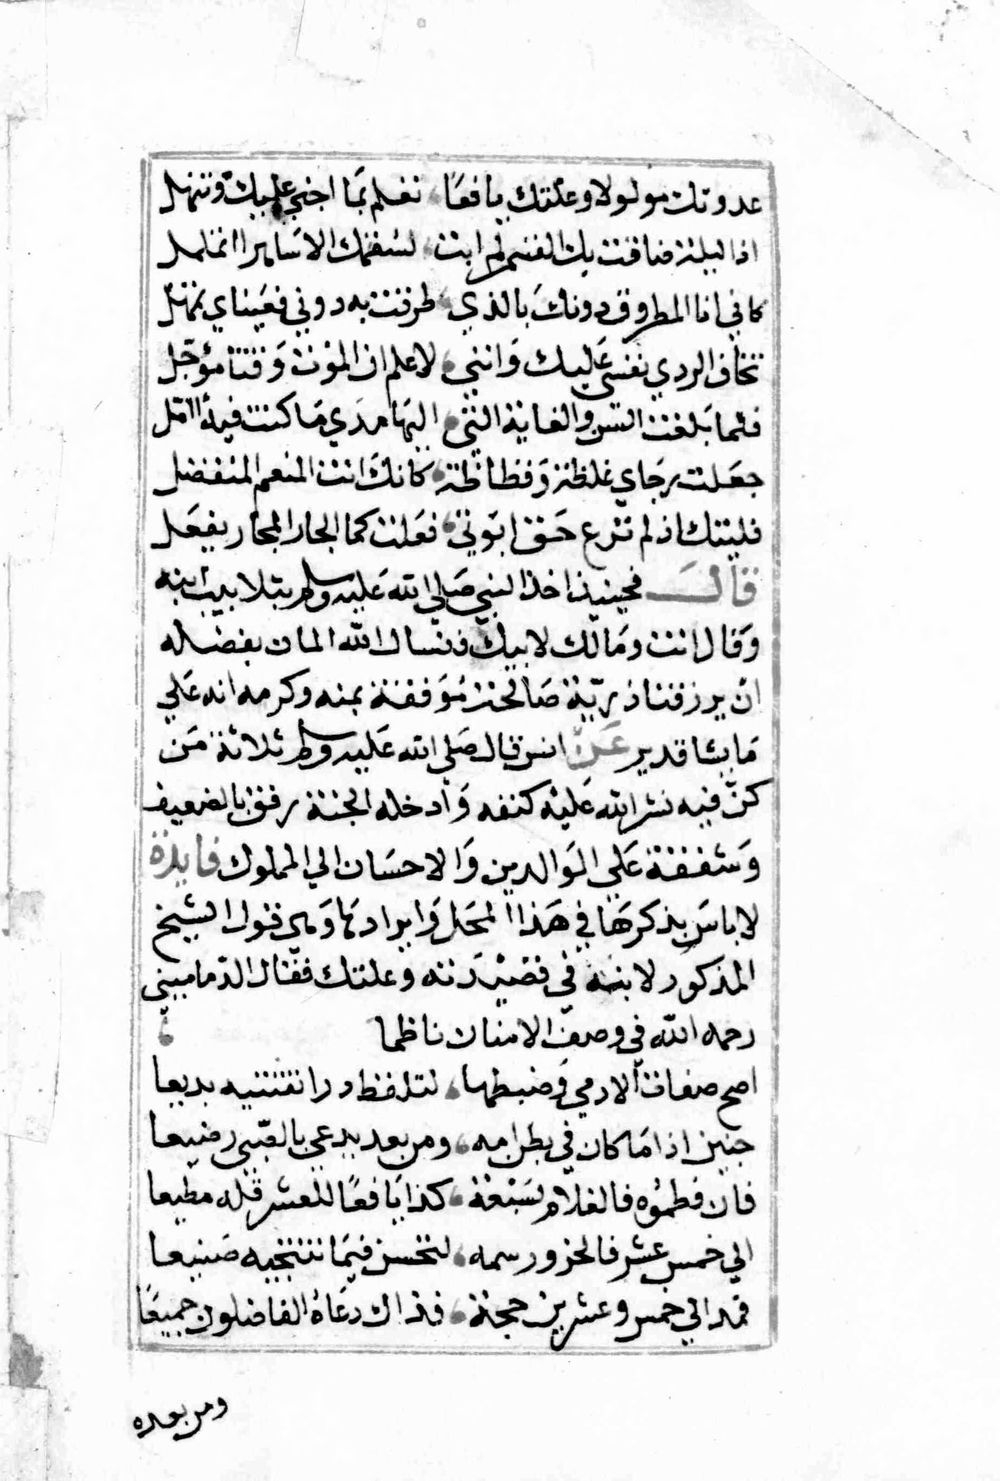 غدوتك مولودا وعلتك يافعا، تعلم بما اجني عليك وتنهل
اذا ليلة ضاقتك بالسقم لم ابت، لسقمك الا ساهرا اتململ
كاني انا المطروق دونك بالذي، طرقت به دوني فعيناي تهمل
تخاف الردي نفسي عليك وانني، لاعلم ان الموت وقتا مؤجل
فلما بلغت السن والغاية التي، اليها مدي ما كنت فيك اامل
جعلت جزاي غلظة وفظاظة، كانك انت المنعم المتفضل
فليتك اذ لم ترع حق ابوتي، فعلت كما الجار المجار يفعل
قال فحينيذ اخذ النبي صلي الله عليه وسلم بتلابيب ابنه
وقال انت ومالك لابيك فنسال الله المان بفضله
ان يرزقنا ذرية صالحة موفقة بمنه وكرمه انه علي
ما يشا قدير عن انس قال صلي الله عليه وسلم ثلاثة من
كن فيه نشر الله عليه كنفه وادخله الجنة رفق بالضعيف
وشفقة علي الوالدين والاحسان الي المملوك فايدة
لا باس بذكرها في هذا المحل وايرادها وهي قول الشيخ
المذكور لابنه في قصيدته وعلتك فقال الدماميني
رحمه الله في وصف الاسنان ناظما،
اصح صفات الادمي وضبطها، لتلفظ درا تقتنيه بديعا
جنين اذا ما كان في بطن امه، ومن بعد يدعي بالصبي رضيعا
فان فطموه فالغلام لسبعة، كذا يافعا للعشر قله مطيعا
الي خمس عشر فالحزور سمه، لتحسن فيما تنتجيه صنيعا
قمد الي خمس وعشرين حجة، فذاك دعاه الفاضلون جميعا
ومن بعده